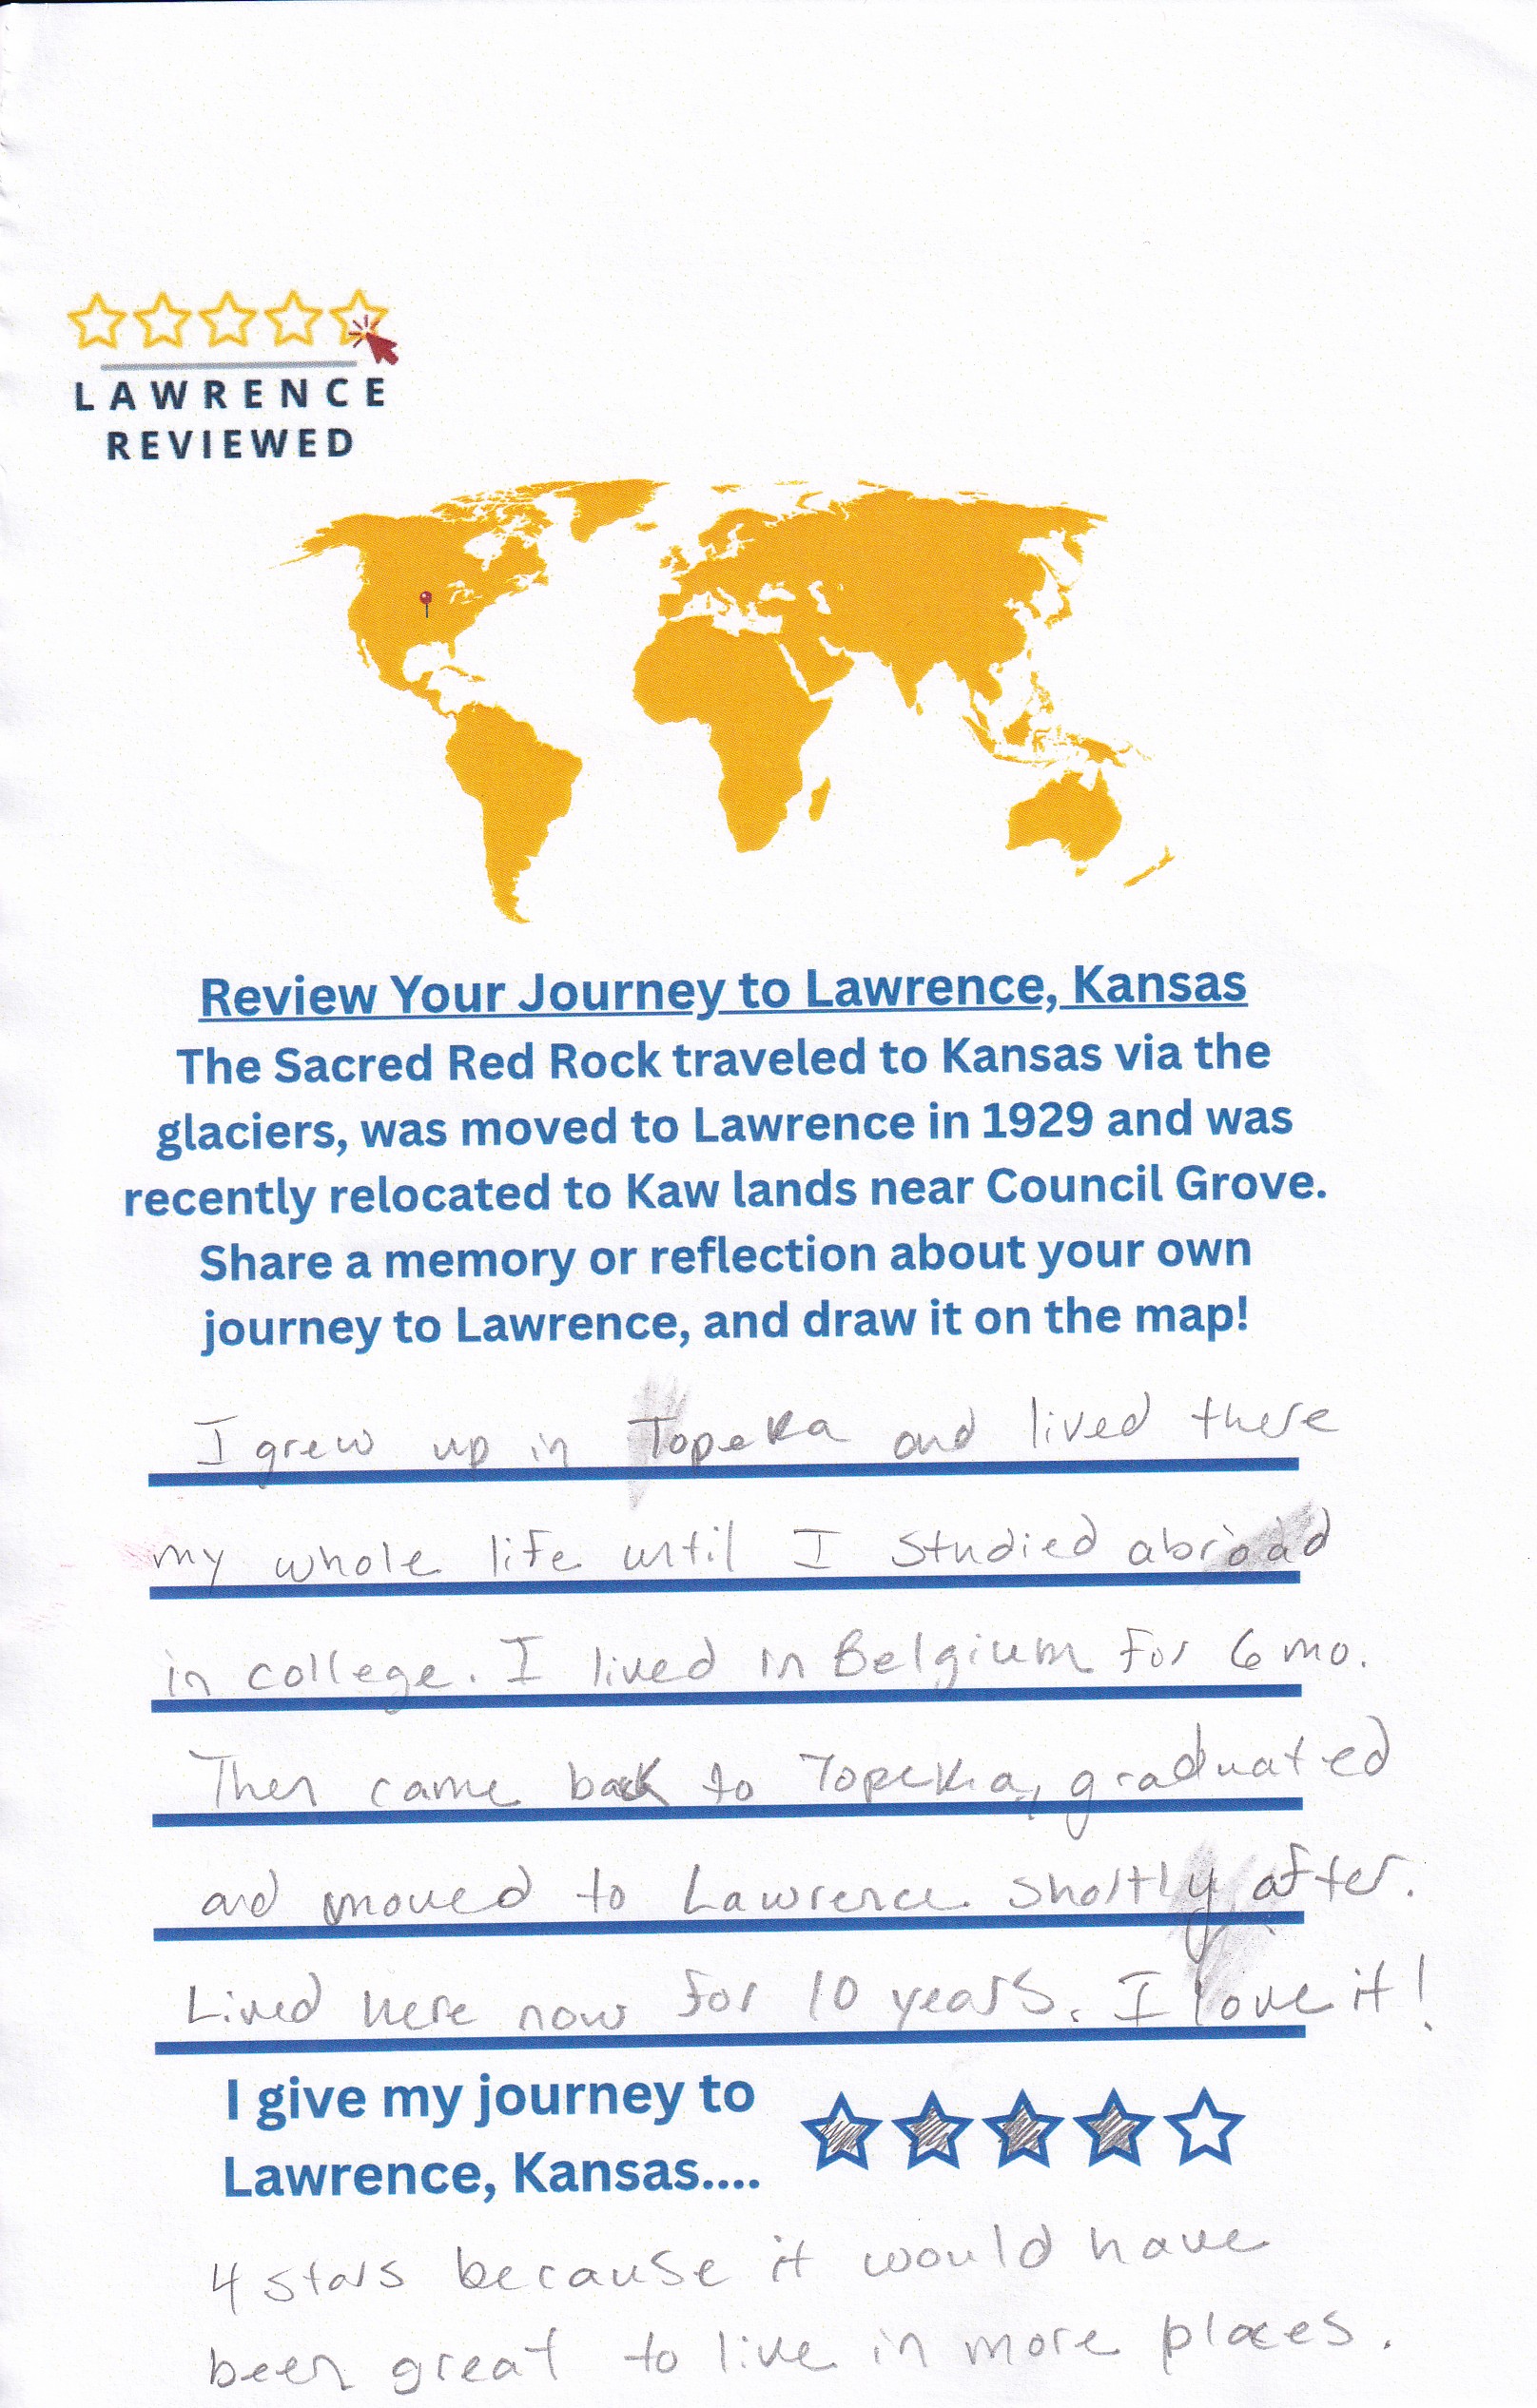 LAWRENCE
REVIEWED
Review Your Journey to Lawrence, Kansas
The Sacred Red Rock traveled to Kansas via the
glaciers, was moved to Lawrence in 1929 and was
recently relocated to Kaw lands near Council Grove.
Share a memory or reflection about your own
journey to Lawrence, and draw it on the map!
I grew up in Topeka and lived there
my whole life until I studied abroad
in college. I lived in Belgium for 6 mo.
Then came back to Topeka, graduated
and moved to Lawrence shortly after.
Lived here now for 10 years. I love it!
I give my journey to
Lawrence, Kansas....
4 stars because it would have
been great to live in more places.